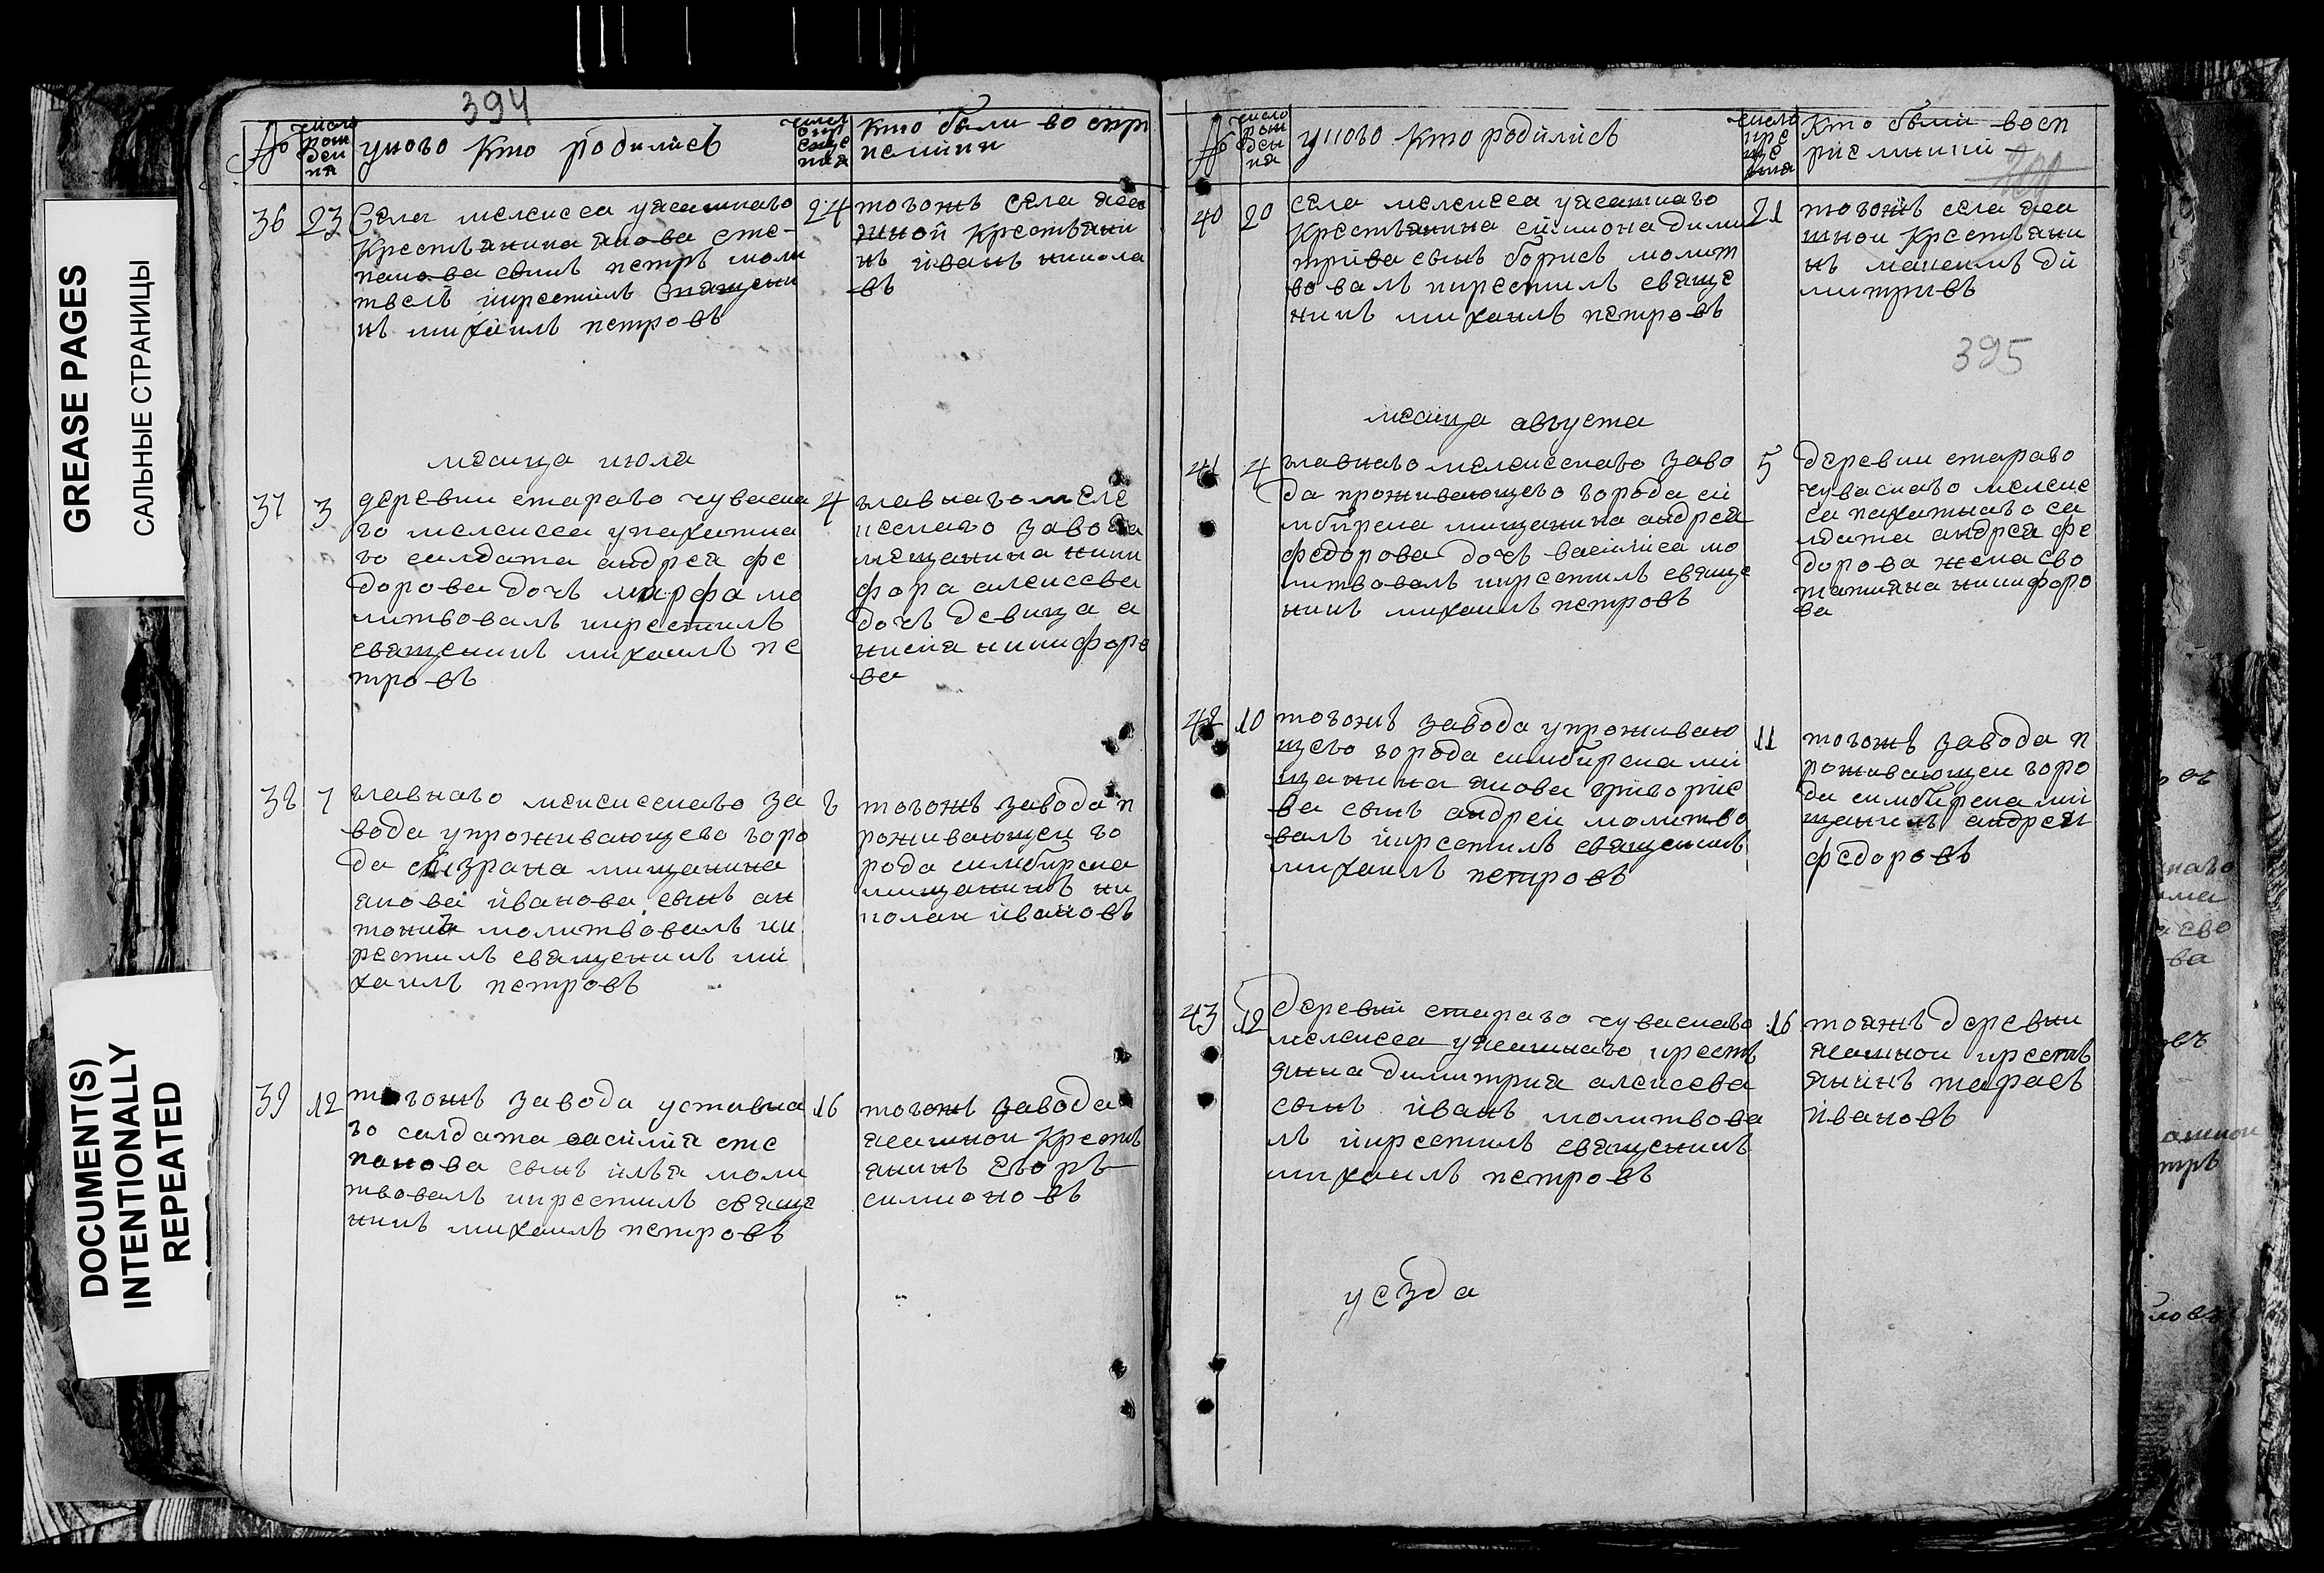 GREASE PAGES
САЛЬНЫЕ СТРАНИЦЫ
DOCUMENT(S)
INTENTIONALLY
REPEATED
394
№
число
рож
ден
ия
укого Кто родились
число
крещения
Кто были во спри
36 23 Села мелекеса уясашнаго 24
Крестьянина якова сте-
панова сынъ петръ моли
твелъ икрестилъ Священи
къ михаилъ петровъ
тогожъ села ясa
шной Крестьяни
нъ иванъ никола
въ
месица июля
37 3 деревни стараго чуваска 4
го мелекеса упахатна
го салдата андрея фе
дорова дочъ марфа мо
литвовалъ икрестилъ
священикъ михаилъ пе
тровъ
главнаго меле
кескаго завода
мещанина ники
фора алексева
дочъ девица а
нисия никифоро
ва
38 7 главнаго мелекескаго за 8
вода упроживающего горо
да сызрана мищанина
якова иванова сынъ ан
тонъ молитвовалъ ик
рестилъ священикъ ми
хаилъ петровъ
тогожъ завода п
роживающеи го
рода симбирска
мищанинъ ни
колаи ивановъ
39 12 тогожъ завода уставна 16
го салдата василия сте
панова сынъ илья моли
твовалъ икрестилъ свяще
никъ михаилъ петровъ
тогожъ завода
ясашнои Кресть
янинъ егоръ
симионовъ
№
число
рож
ден
ия
укого Кто родились
число
кре
ще
ния
Кто были восп
риемники
40 20 села мелекеса уясашнаго 21
Крестьянина симиона дими
трива сынъ борисъ молит
вовалъ икрестилъ свяще
никъ михаилъ петровъ
тогожъ села яса
шнои Крестьяни
нъ максимъ ди
митривъ
395
месица августа
41 4 главнаго мелекескаго заво 5
да проживающего города си
мбирска мищанина андрея
федорова дочъ василиса мо
литвовалъ икрестилъ свяще
никъ михаилъ петровъ
деревни стараго
чуваскаго мелеке
са пахатнаго са
лдата андрея фе
дорова жена ево
татияна никифоро
ва
42 10 тогожъ завода упроживаю 11
щего города симбирска ми
щанина якова григорие
ва сынъ андреи молитво
валъ икрестилъ священикъ
михаилъ петровъ
тогожъ завода п
роживающеи горо
да симбирска ми
щанинъ андреи
федоровъ
43 12 деревни стараго чуваскаго 16
мелекеса уясашнаго кресть
янина димитрия алексева
сынъ иванъ молитвова
лъ икрестилъ священикъ
михаилъ петровъ
тояжъ деревни
ясашнои кресть
янинъ тарасъ
ивановъ
уезда